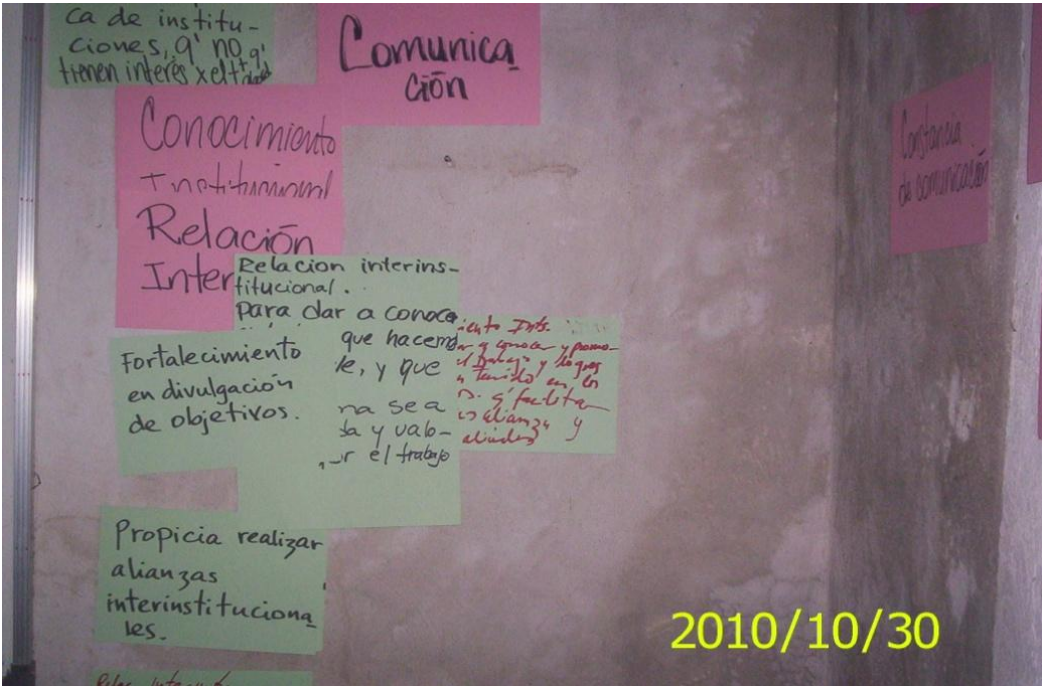 ca de institu-
ciones, q' no
tienen interés x el
Comunica
ción
Conocimiento
Institucional
Relación
Inter
Relacion interins-
titucional.
Para dar a conoce
que hacemo
le, y que
na sea
da y valo-
r el trabajo
iento Ints.
r a conocer y promo-
l trabajo y logros
tenido en los
q' facilita
alianza y
Fortalecimiento
en divulgación
de objetivos.
Propicia realizar
alianzas
interinstituciona
les.
Constancia
de comunicación
2010/10/30